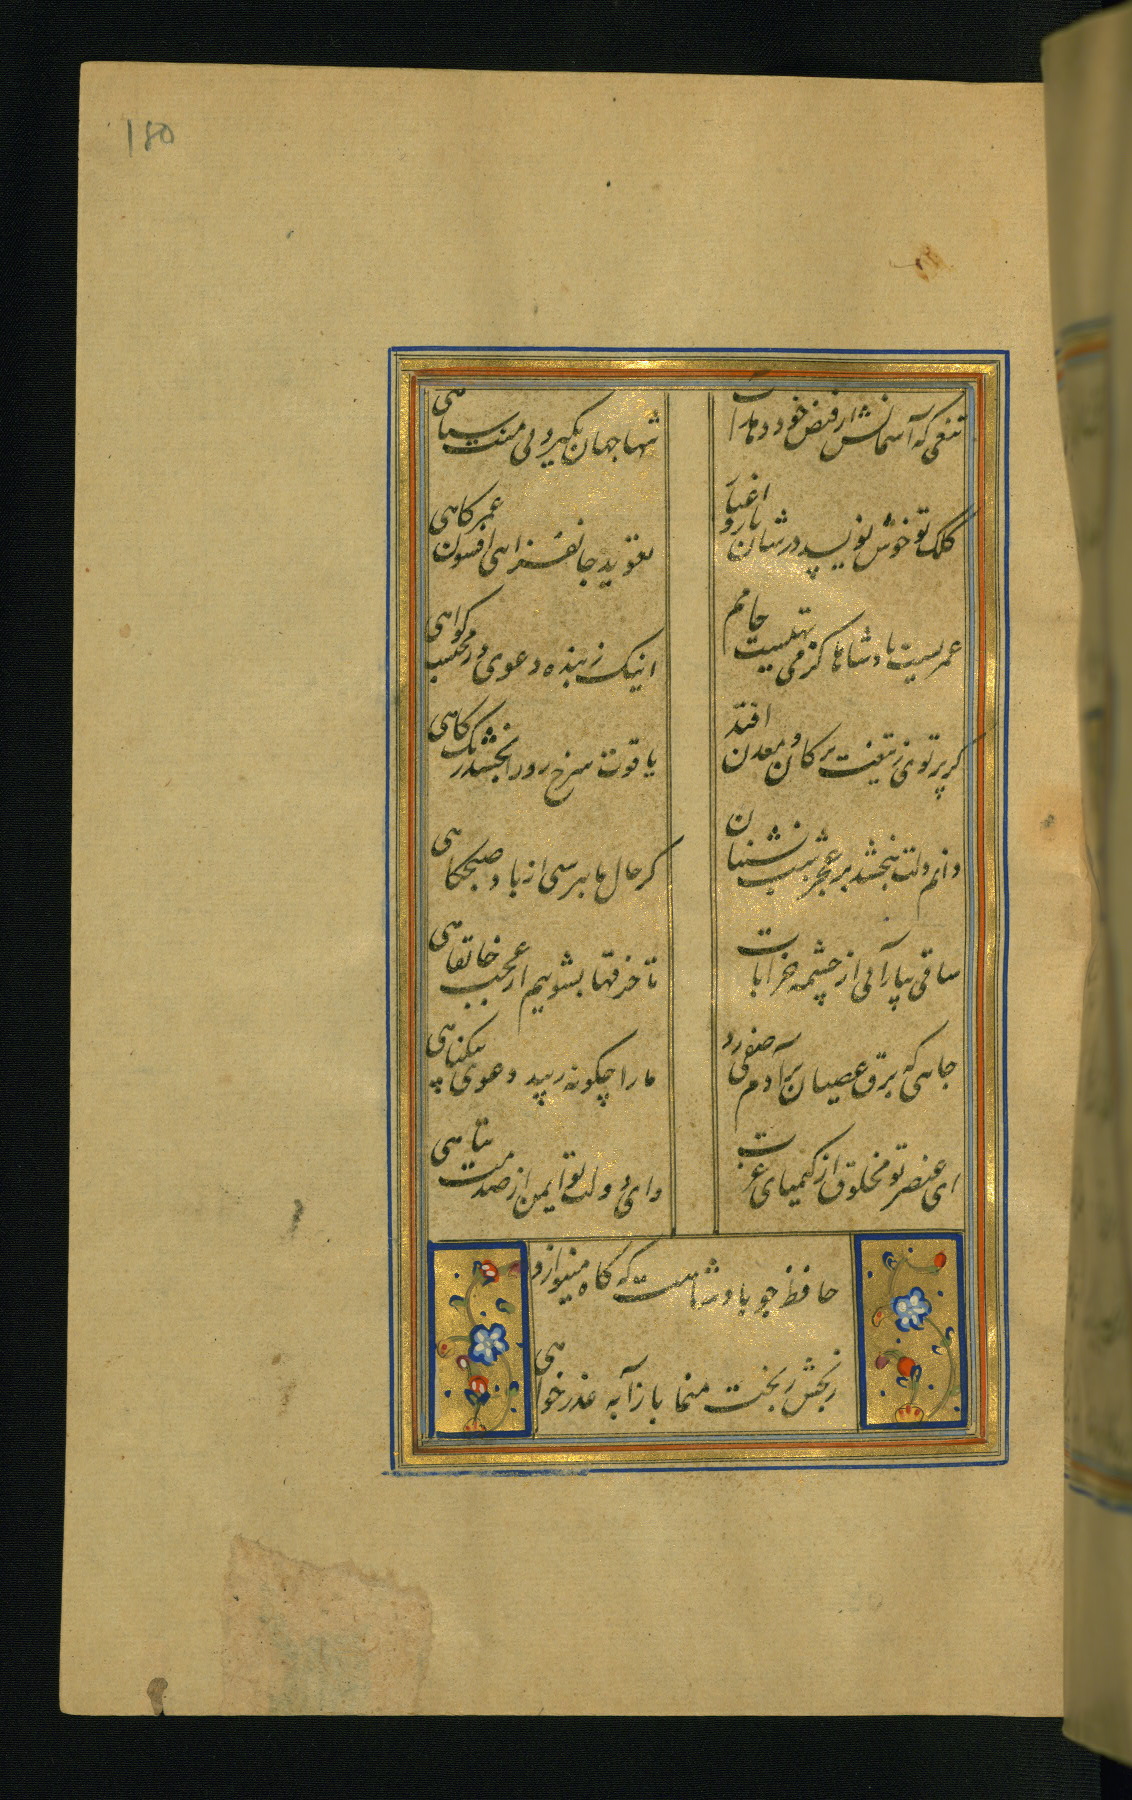 180
تیغی که آسمانش از فیض خود دهد آب
تنها جهان بگیرد بی منت سپاهی
کلک تو خوش نویسد در شان یار و اغیار
تعویذ جانفزایی افسون عمر کاهی
عمریست پادشاها کز می تهیست جامم
اینک ز بنده دعوی وز محتسب کواهی
کر پرتوی ز تیغت بر کان و معدن افتد
یاقوت سرخ رو را بخشد رنک کاهی
دانم دلت ببخشد بر عجز شب نشینان
کر حال ما بپرسی از باد صبحکاهی
ساقی بیار آبی از چشمه خرابات
تا خرقها بشوییم از عجب خانقاهی
جایی که برق عصیان بر آدم صفی زد
ما را چکونه زیبد دعوی بیکناهی
ای عنصر تو مخلوق از کیمیای عزت
وای دولت تو ایمن از صدمت تباهی
حافظ چو پادشاهت که گاه میبرد
رنجش ز بخت منما باز آ به عذر خواهی